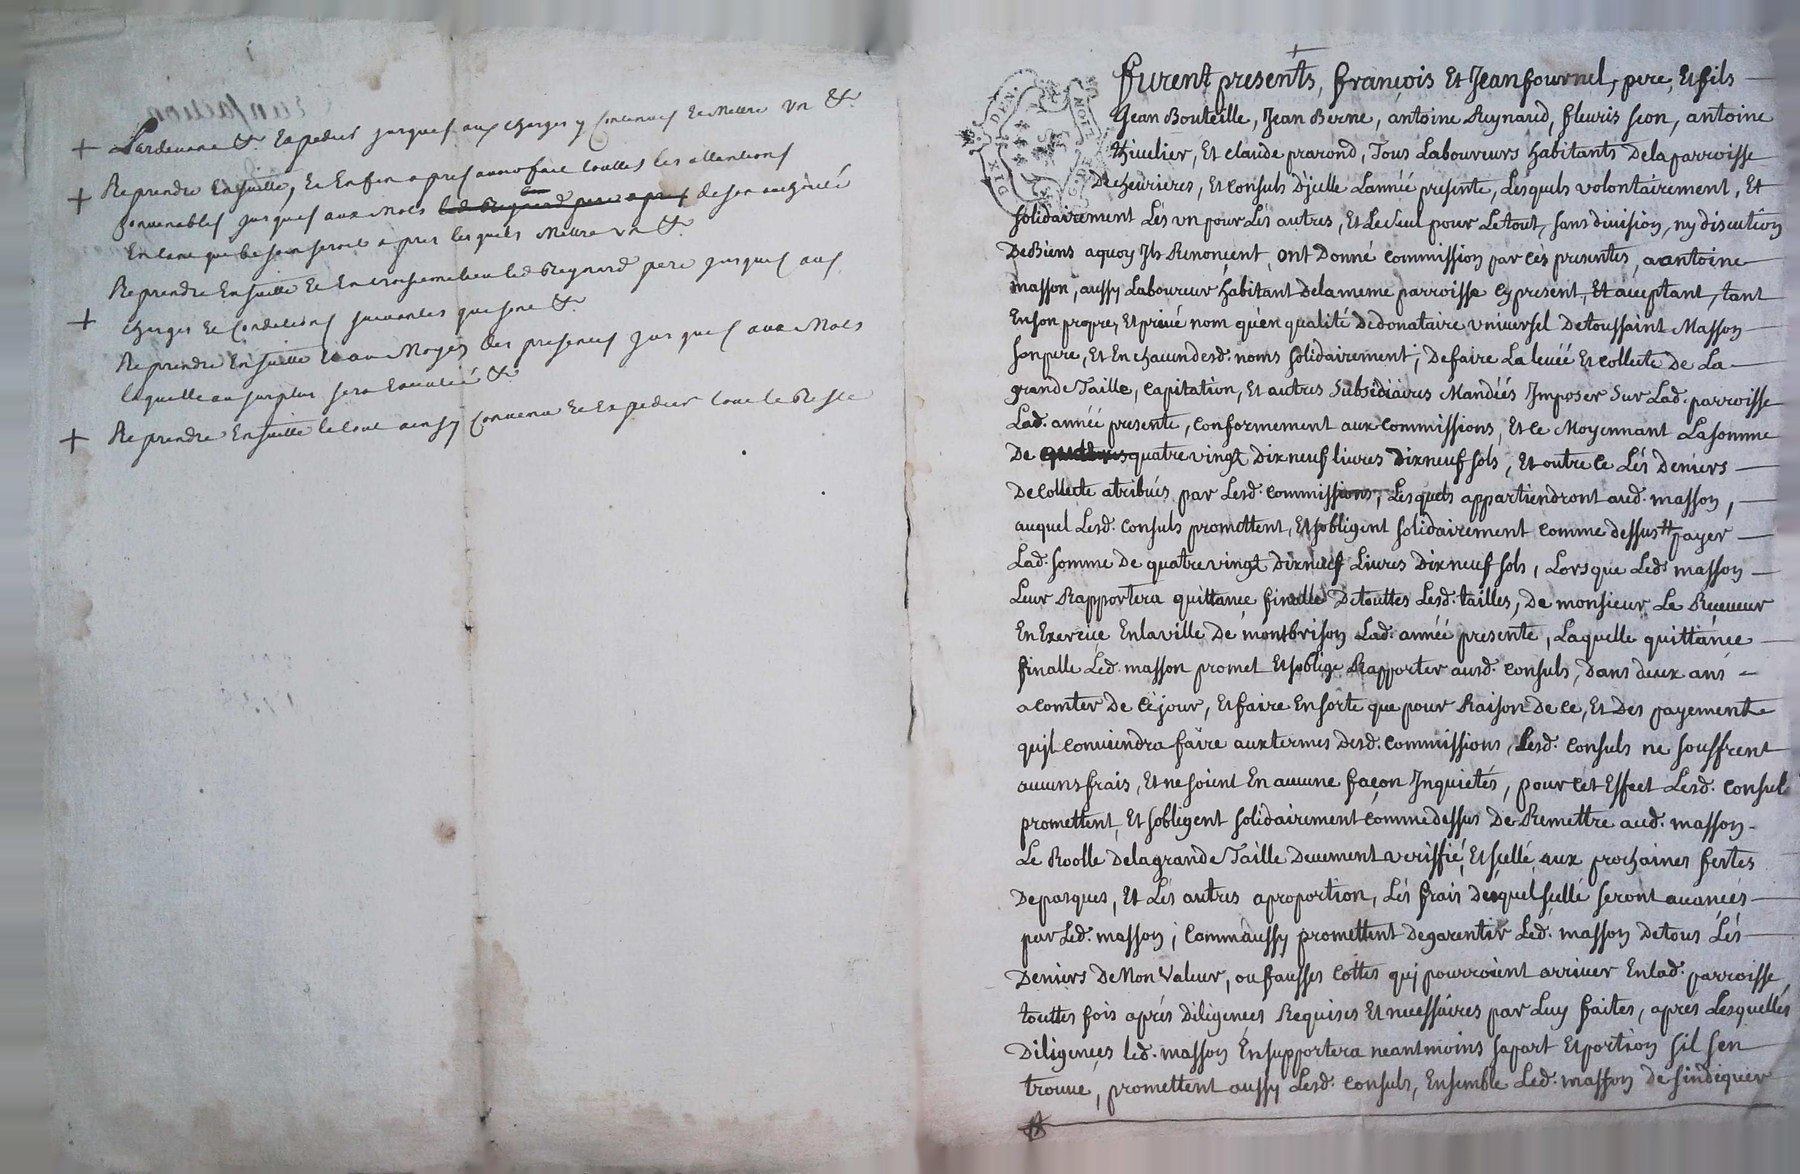 Pardevant &c. Expedier jusques aux charges y contenues et Mettre un &c.
Reprendre Ensuitte, Et Enfin apres avoir fait touttes les attentions
convenables jusques aux Mots led. Reynard pere apres de son authorité
En tant que besoin seroit apres lesquels Mettre un &c.
Reprendre Ensuitte led Reynard pere jusques aux
charges Et Conditions suivantes que sont &c.
Reprendre Ensuitte Et au Moyen des presentes jusques aux Mots
laquelle au surplus sera &c.
Reprendre Ensuitte le tout ainsy Convenu Et Expedier tout le Reste
DIX DEN.
furent presents, françois Et Jean fournel, pere, Et fils
Jean Bouteille, Jean Berne, antoine Reynard, fleuris seon, antoine
thiuelier, Et claude prarond, Tous Laboureurs habitants De la parroisse
De cheurieres, Et consuls D'jcelle L'année presente, Lesquels volontairement, Et
solidairement Lés vn pour Lés autres, Et Le seul pour Le tout, sans diuision, ny discution
De Biens aquoy Jls Renonçent, ont Donné commission par ces presentes, a antoine
masson, aussy Laboureur habitant De la meme parroisse cy present, Et acceptant, tant
En son propre, Et priué nom qu'en qualité De donataire vniuersel De toussaint Masson
son pere, Et En chacun desd. noms solidairement; De faire La leuéé Et collecte De La
grande Taille, capitation, Et autres subsidiaires Mandéés Jmposer sur Lad. parroisse
Lad. année presente, conformement aux commissions, Et ce Moyennant La somme
De quatre vingt Dix neuf liures Dix neuf sols, Et outre ce Lés Deniers
De collecte atribués par Lesd. commissions, Lesquels appartiendront aud. masson,
auquel Lesd. consuls promettent, Et sobligent solidairement comme dessus # payer
Lad. somme De quatre vingt Dix neuf Liures Dix neuf sols, Lorsque Led. masson
Leur Rapportera quittance finalle De touttes Lesd. tailles, De monsieur Le Receueur
En Exercice En la ville De montbrison Lad. année presente, Laquelle quittance
finalle Led. masson promet Et soblige Rapporter ausd. consuls, Dans deux ans
a comter De ce jour, Et faire En sorte que pour Raison De ce, Et Des payements
qu'jl conuiendra faire aux termes Desd. commissions, Lesd. consuls ne souffrent
aucuns frais, Et ne soient En aucune façon Jnquietés, pour cet Effect Lesd. consuls
promettent, Et sobligent solidairement comme dessus De Remettre aud. masson
Le Roolle De la grande Taille Deuement veriffié, Et scellé, aux prochaines festes
De pasques, Et Lés autres a proportion, Lés frais Desquel scellé seront auancés
par Led. masson; comm'aussy promettent De garentir Led. masson De tous Lés
Deniers De Non valeur, ou fausses cottes quj pourroient arriuer En lad. parroisse
touttes fois aprés Diligences Requises Et necessaires par Luy faites, aprés Lesquelles
Diligences led. masson En supportera neantmoins sa part Et portion s'il s'en
trouue, promettent aussy Lesd. consuls, Ensemble Led. masson de sindiquer